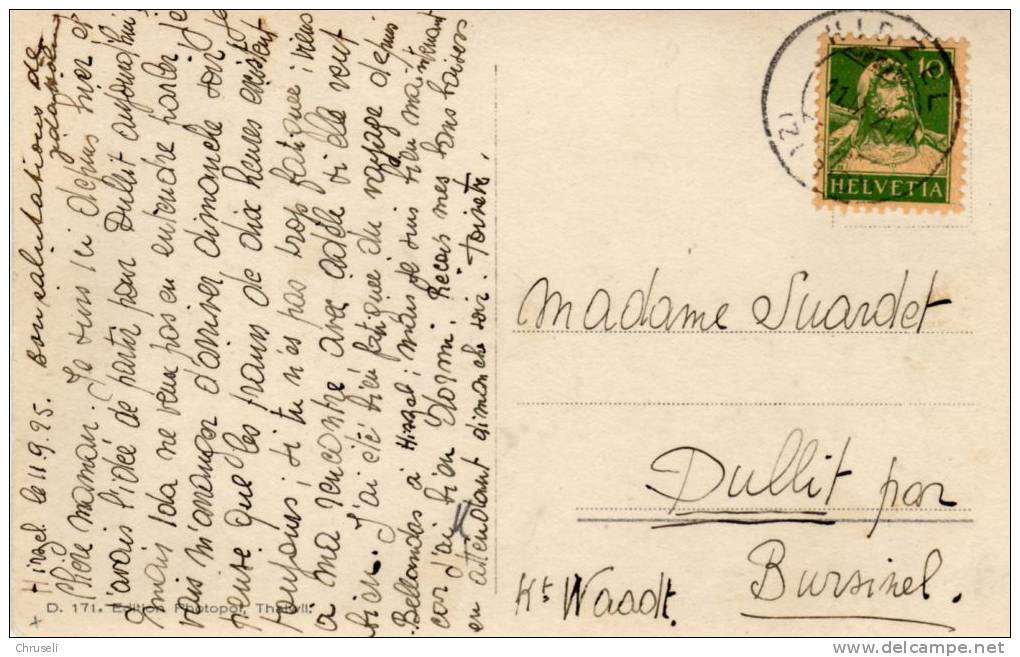 Hirzel le 11.9.25. Bonnes salutations de
Chère maman. Je suis ici depuis hier et
j'avais l'idée de partir pour Dullit aujourd'hui
mais Ida ne veux pas en entendre parler je
vais m'arranger d'arriver dimanche soir je
pense que les trains de dix heures existent
toujours, si tu n'es pas trop fatiguée viens
à ma rencontre avec Adèle si elle veut
bien. J'ai été bien fatiguée du voyage depuis
à Hirzel; mais je suis bien maintenant
car j'ai bien dormi. Recois mes bons baisers
en attendant dimanche soir.
HIRZEL
10
HELVETIA
Madame Suardet
Dullit par
Bursinel.
Kt Waadt.
D. 171. Edition Photopol, Thalwil.
© Chruseli
delcampe.net